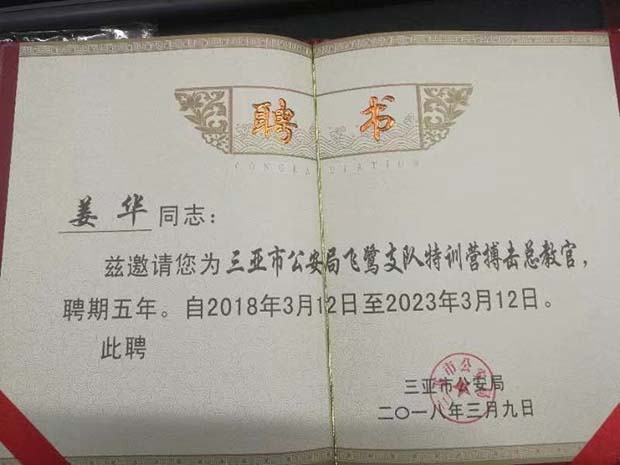 聘书
CONGRATULATION
姜华同志：
兹邀请您为三亚市公安局飞鹭支队特训营搏击总教官，
聘期五年。自2018年3月12日至2023年3月12日。
此聘
三亚市公安局
二〇一八年三月九日